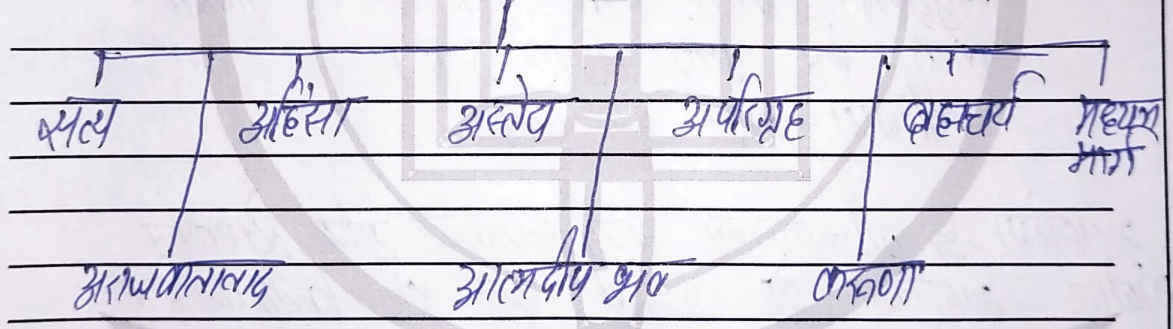 सत्य अहिंसा अस्तेय अपरिग्रह ब्रह्मचर्य मध्यम
मार्ग
अराजकतावाद आत्मदीप भव करूणा